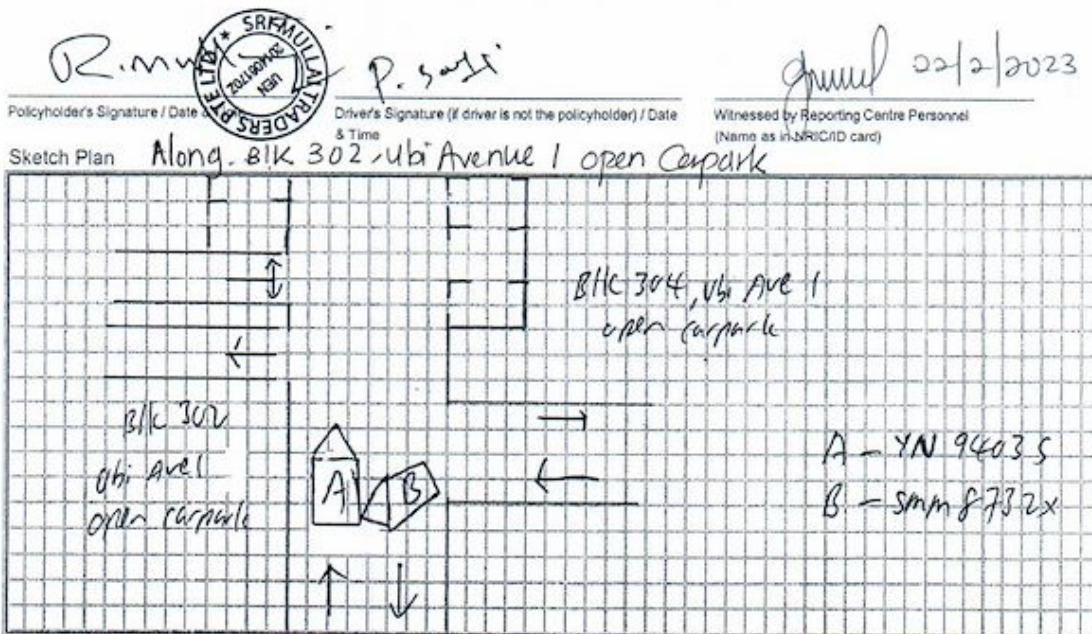 SRI MULLAI TRADERS PTE LTD *
UEN
201408170Z
P. saji
22/2/2023
Policyholder's Signature / Date &
Driver's Signature (if driver is not the policyholder) / Date
& Time
Witnessed by Reporting Centre Personnel
(Name as in NRIC/ID card)
Sketch Plan Along. Blk 302, Ubi Avenue 1 open Carpark
Blk 304, Ubi Ave 1
open carpark
Blk 302
Ubi Ave 1
open carpark
A
B
A - YN 9403S
B - SMM 8732X